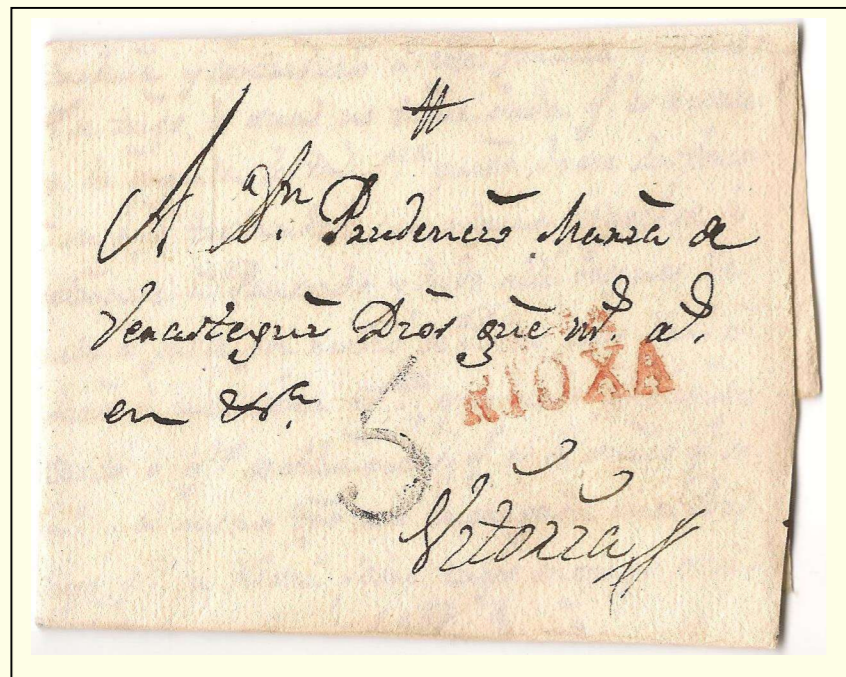 A D.n Prudencio Maria de
Verastegui Dios gue m.s a.s
RIOXA
en
5
Vitoria